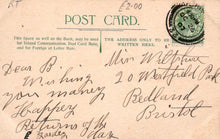 £2.00
POST CARD.
This Space as well as the Back, may be used
for Inland Communication, Inland Card Rate,
and for Foreign at Letter Rate.
THE ADDRESS ONLY TO BE
WRITTEN HERE.
Dear B,
Wishing
you many
Happy
Returns of the
Day
Miss Wiltshire
20 Westfield Park
Redland
Bristol